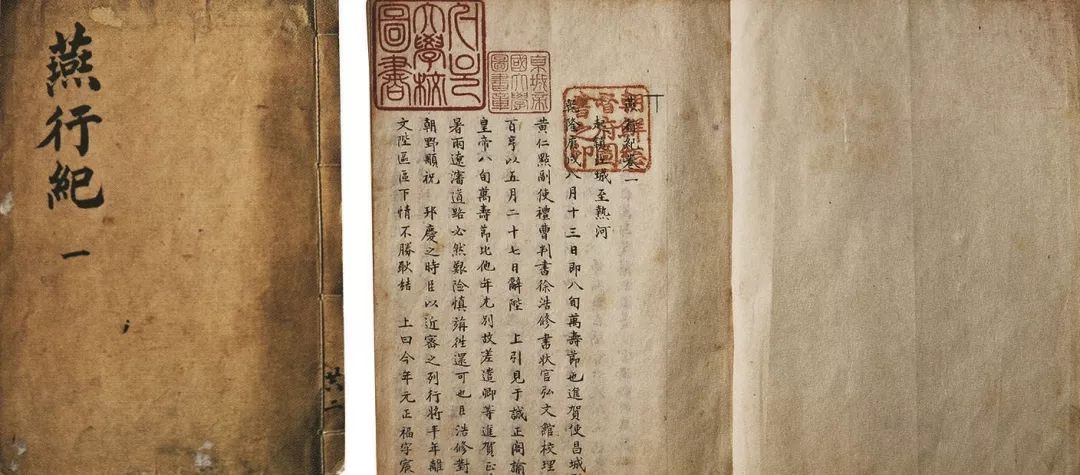 燕行紀
一
共二
서울大學校圖書
京城帝國大學圖書章
朝鮮總督府圖書之印
燕行紀卷一
起鎮江城至熱河
乾隆庚戌八月十三日即八旬萬壽節也進賀使昌城
黃仁點副使禮曹判書徐浩修書狀官弘文館校理
百亨以五月二十七日辭陛 上引見于誠正閣諭
皇帝八旬萬壽節比他年尤別故差遣卿等進賀正
暑雨遼瀋道路必然艱險慎旃徃還可也臣浩修對
朝野顒祝 邦慶之時臣以近密之列行將半年離
文陛區區下情不勝耿結 上曰今年元正福字宸